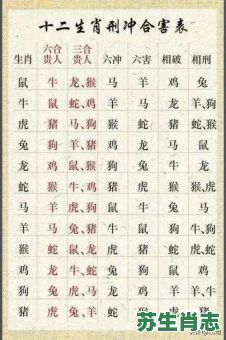 十二生肖刑冲合害表
生肖 六合贵人 三合贵人 六冲 六害 相破 相刑
鼠 牛 龙、猴 马 羊 鸡 兔
牛 鼠 蛇、鸡 羊 马 龙 羊、狗
虎 猪 马、狗 猴 蛇 猪 蛇、猴
兔 狗 羊、猪 鸡 龙 马 鼠
龙 鸡 鼠、猴 狗 兔 牛 龙
蛇 猴 牛、鸡 猪 虎 猴 猴、虎
马 羊 虎、狗 鼠 牛 兔 马
羊 马 兔、猪 牛 鼠 狗 狗、牛
猴 蛇 鼠、龙 虎 猪 蛇 虎、蛇
鸡 龙 牛、蛇 兔 狗 鼠 鸡
狗 兔 虎、马 龙 鸡 羊 牛、羊
猪 虎 兔、羊 蛇
苏生肖志